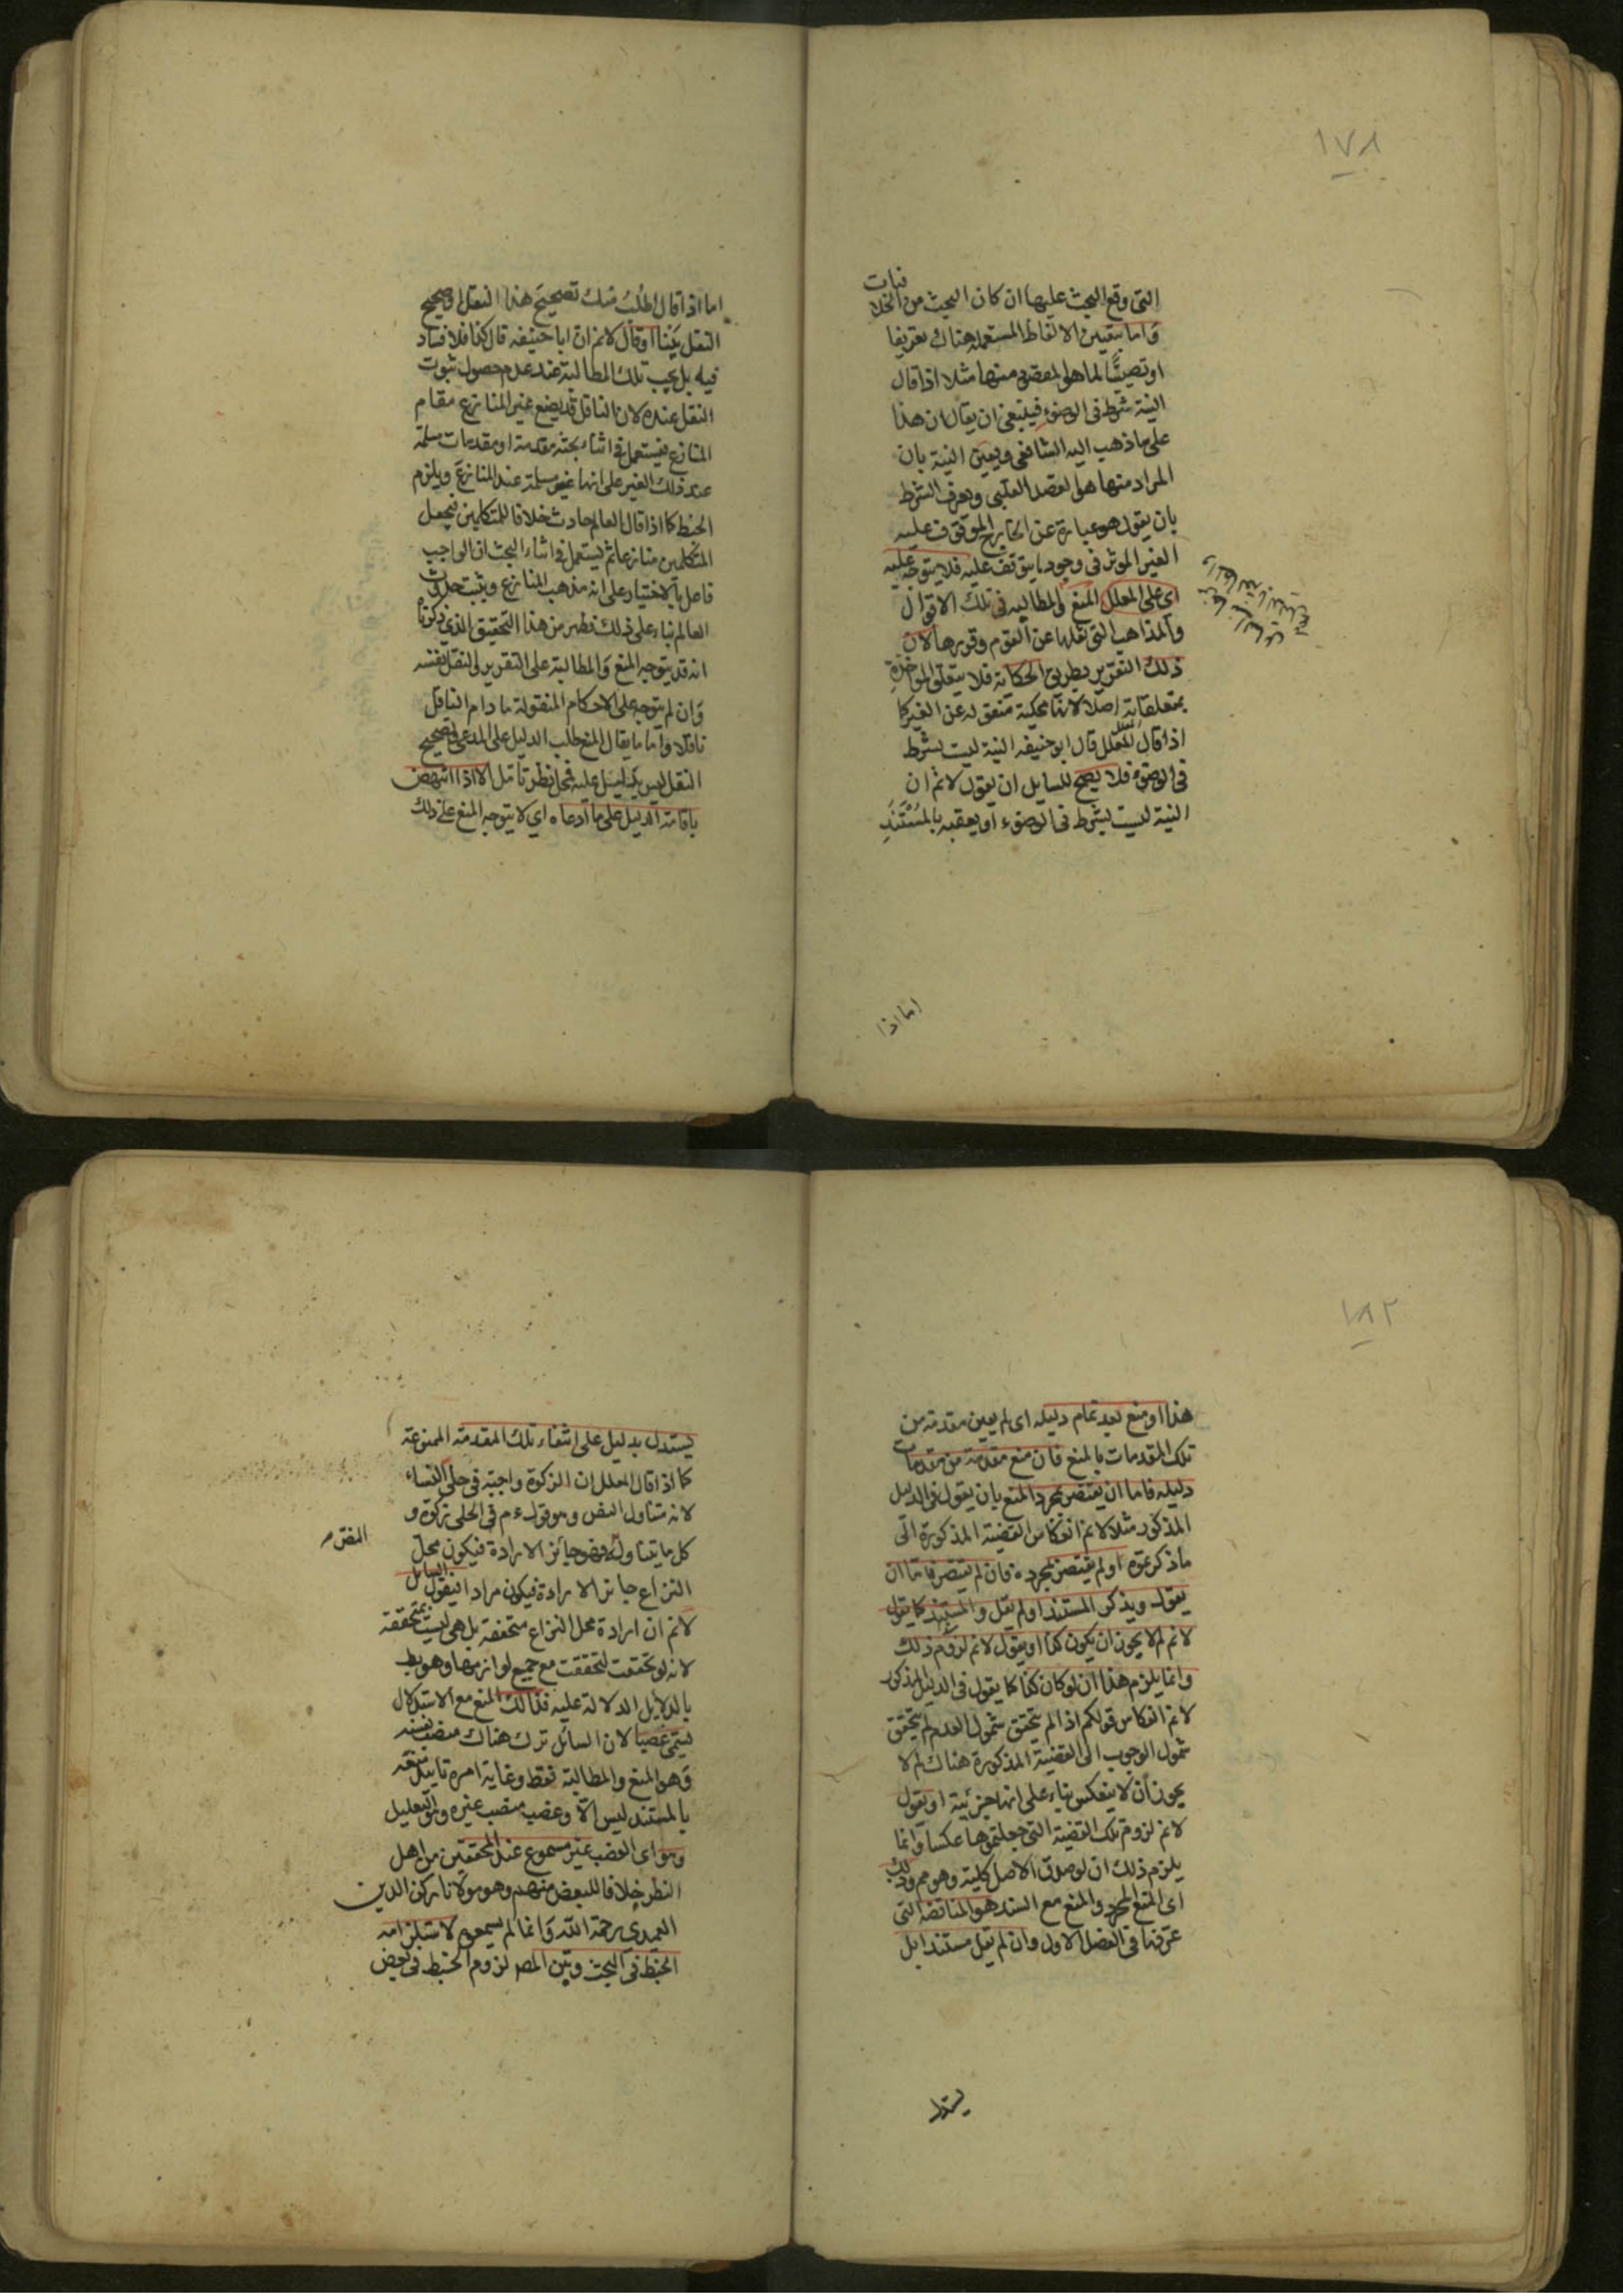 ١٧٨
التى وقع البحث عليها ان كان البحث من الخلا
فيات
واما بتعيين الالفاظ المستعملة هناك تعريفا
او تصيصًا لما هو المقصود منها مثلا اذا قال
النية شرط فى الوضوء فينبغى ان يقال ان هذا
على ما ذهب اليه الشافعى ويعين النية بان
المراد منها هو القصد القلبى ويعرف الشرط
بان يقول هو عبارة عن الخارج الموقوف عليه
الغير الموثر فى وجود ما يتوقف عليه فلا يتوجه عليه
اى على المعلل المنع والمطالبه فى تلك الاقوال
والمذاهب التى نقلها عن القوم وقررها لان
ذلك التقرير بطريق الحكاية فلا يتعلق المواخذة
بمتعلقاته اصلا لانها محكية منقولة عن الغير كما
اذا قال المعلل قال ابو حنيفه النية ليست بشرط
فى الوضوء فلا يصح للسايل ان يقول لا نم ان
النية ليست بشرط فى الوضوء او يعقبه بالمستند
اما اذا
اما اذا قال اطلب منك تصحيح هذا النقل او صحيح
النقل يَبِنا او قال لا نم ان ابا حنيفه قال كذا فلا فساد
فيه بل يجب تلك المطالبة عند عدم حصول ثبوت
النقل عنده لان الناقل قد يضع غير المنازع مقام
المنازع فيستعمل فى اثناء بحثه مقدمة او مقدمات مسلمة
عند ذلك الغير على انها غير مسلمة عند المنازع ويلزم
الخبط كما اذا قال العالم حادث خلافا للمتكلمين فيجعل
المتكلمين منازعا ثم يستعمل فى اثناء البحث ان الواجب
فاعل بالاختيار على انه مذهب المنازع ويثبت حدوث
العالم بناء على ذلك فظهر من هذا التحقيق الذى ذكرناه
انه قد يتوجه المنع والمطالبة على التقرير والنقل نفسه
وان لم يتوجه على الاحكام المنقولة ما دام الناقل
ناقلا واما ما يقال المنع طلب الدليل على المدعى وتصحيح
النقل ليس بدليل عليه فمحل نظر تامل الا اذا انتهض
باقامة الدليل على ما ادعاه اى لا يتوجه المنع على ذلك
١٨٢
هذا او منع بعد تمام دليله اى لم يعين مقدمة من
تلك المقدمات بالمنع فان منع مقدمة من مقدمات
دليله فاما ان يقتصر بمجرد المنع بان يقول فى الدليل
المذكور مثلا لا نم انعكاس القضية المذكورة الى
ما ذكرتموه او لم يقتصر بمجرده فان لم يقتصر فاما ان
يقول ويذكر المستند او لم يقل والمستند كما يقول
لا نم لم لا يجوز ان يكون كذا او يقول لا نم لزوم ذلك
وانما يلزم هذا ان لو كان كذا كما يقول فى الدليل المذكور
لا نم انعكاس قولكم اذا لم يتحقق شمول العدم لم يتحقق
شمول الوجوب الى القضية المذكورة هناك لم لا
يجوز ان لا ينعكس بناء على انها جزئية او يقول
لا نم لزوم تلك القضية التى جعلتموها عكسا وانما
يلزم ذلك ان لو صدق الاصل كلية وهو مم وذلك
اى المنع المجرد والمنع مع السند هو المناقضة التى
عرفتها فى الفصل الاول وان لم يقل مستندا بل
يستدل
يستدل بدليل على انتفاء تلك المقدمة الممنوعة
كما اذا قال المعلل ان الزكوة واجبة فى حلى النساء
لانه متناول النص وهو قوله ءم فى الحلى زكوة و
كل ما يتناوله فهو جائز الارادة فيكون محل
النزاع جائز الارادة فيكون مرادا فيقول
السائل
لا نم ان ارادة محل النزاع متحققة بل هى ليست بمتحققة
لانه لو تحققت لتحققت مع جميع لوازمها وهو بط
بالدلايل الدلالة عليه فذالك المنع مع الاستدلال
يسمى غصبا لان السائل ترك هناك منصب نفسه
وهو المنع والمطالبة فقط وغاية امره تايتد منعه
بالمستند ليس الا وغصب منصب غيره وهو التعليل
وهو اى الغصب غير مسموع عند المحققين من اهل
النظر خلافا للبعض منهم وهو مولانا ركن الدين
العميدى رحمة الله وانما لم يسمعوه لاستلزامه
الخبط فى البحث وبين المص لزوم الخبط فى بعض